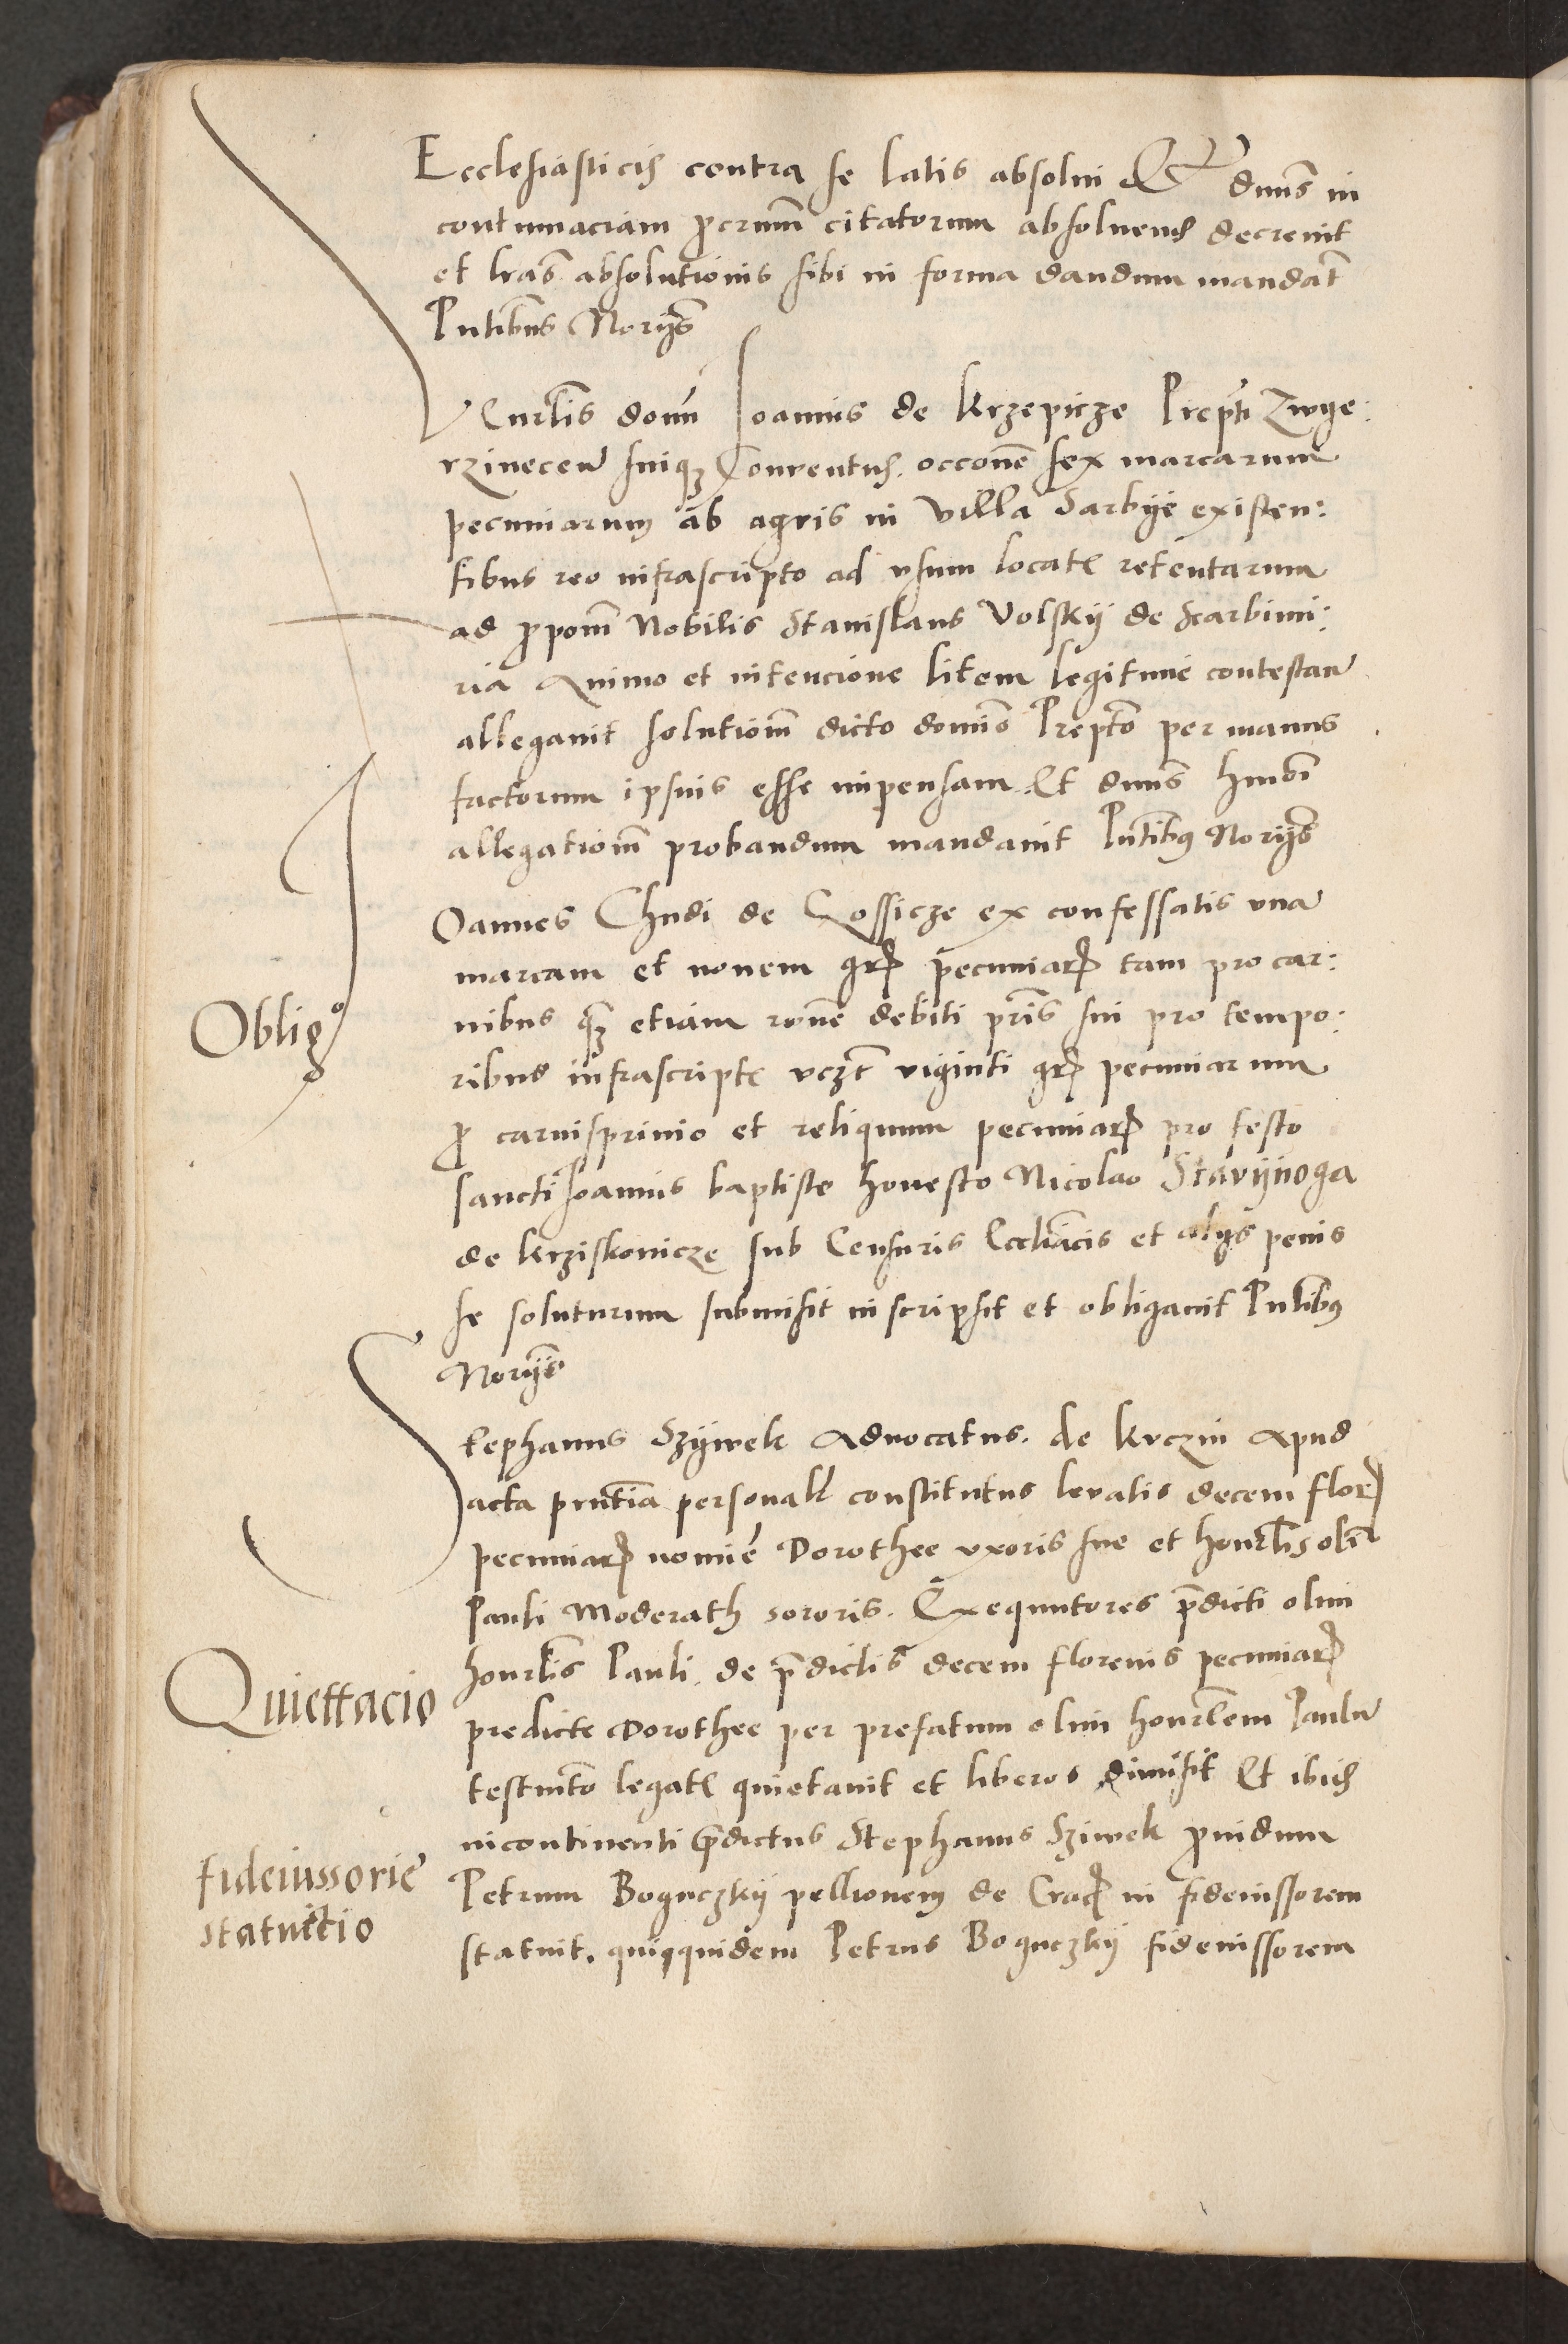 Ecclesiasticis contra se latis absolvi Et dnus in
contumaciam pcrumm citatorum absolvend decrevit
et lras absolutionis sibi in forma dandum mandat
Pntibus Norijs
Venrlis domi Joannis de Krzepicze Prepti Zwye:
rzinecen suiq Conventus occone sex marcarum
pecuniarum ab agris in villa Sarbije existen:
tibus reo infrascripto ad usum locat retentarum
ad pponm Nobilis Stanislaus Volskij de Scarbimi:
ria Animo et intencione litem legitime contestan
allegavit solutionm dicto domino Prepto per manus
factorum ipsius esse impensam Et dnus hmoi
allegationm probandum mandavit Pntibus Norijs
Joannes Chudi de Cossicze ex confessatis una
marcam et novem gr pecuniar tam pro car:
nibus q etiam rone debiti pris sui pro tempo:
ribus infrascript vczt viginti gr pecuniarum
p carnisprivio et reliquum pecuniar pro festo
sancti Joannis baptiste honesto Nicolao Stavijnoga
de Krziskovicze sub Censuris Eccliacis et alijs penis
se soluturum submisit inscripsit et obligavit Pntibus
Norijs
Stephanus Szijwek Advocatus de Krczin Apud
acta pntia personall constitutus levatis decem flor
pecuniar nomie Dorothee uxoris sue et honrlis olim
Pauli Moderath sororis Exequutores pdicti olim
honrlis Pauli de pdictis decem florenis pecuniar
predicte Dorothee per prefatum olim honrlem Paulu
testmto legat quietavit et liberos dimisit Et ibid
incontinenti pdictus Stephanus Sziwek pvidum
Petrum Boguczkij pellionem de Crac in fideiussorem
statuit. quiquidem Petrus Boguczkij fideiussorem
Oblig
Quiettacio
fideiussorie
statuitio